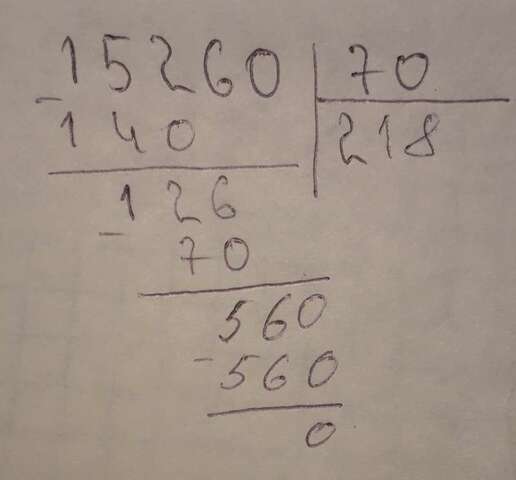 15260 70
- 140 218
126
- 70
560
- 560
0